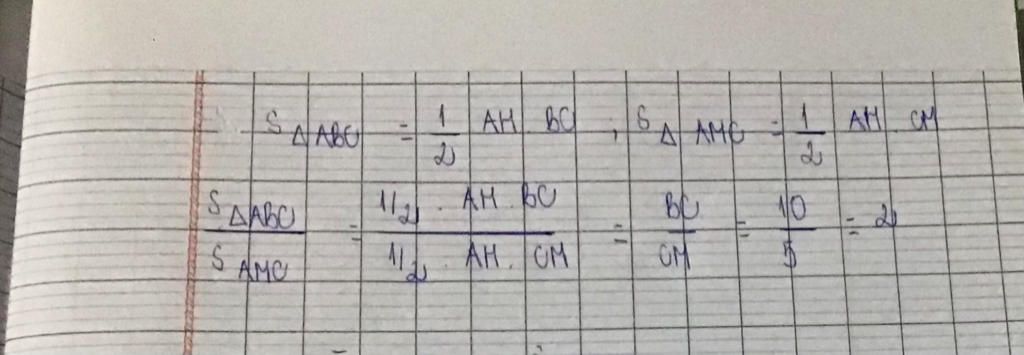 S Δ ABC = 1/2 AH . BC ; S Δ AMC = 1/2 AH . CM
S Δ ABC / S AMC = 1/2 . AH . BC / 1/2 . AH . CM = BC / CM = 10 / 5 = 2